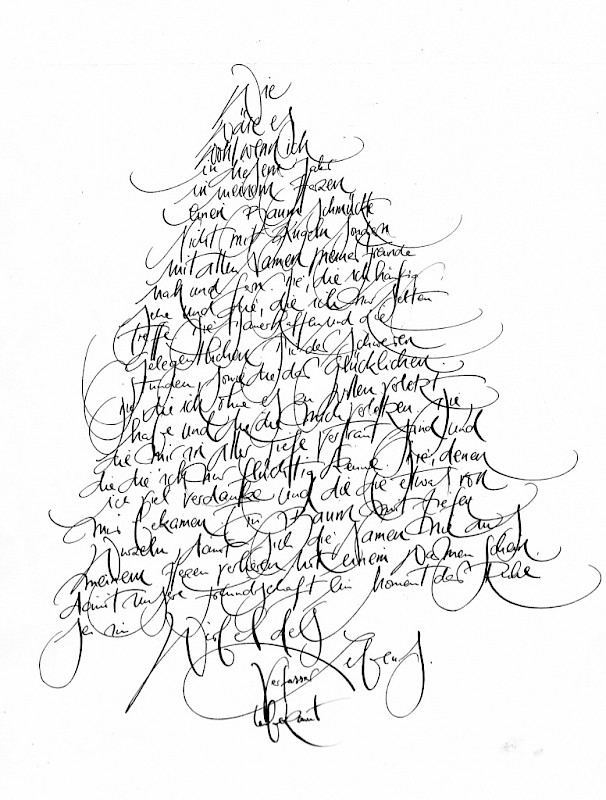 Wie
wäre es
wohl wenn ich
in diesem Jahr
in meinem Herzen
einen Baum schmückte
Nicht mit Kugeln sondern
mit allen Namen meiner Freunde
nah und fern. Die, die ich häufig
sehe und die, die ich nur selten
treffe Die dauerhaften und die
gelegentlichen Die der schweren
Stunden sowie die der Glücklichen.
Die die ich ohne es zu wollen verletzt
habe und die die mich verletzen. Die
die mir in aller Tiefe vertraut sind und
die die ich nur flüchtig kenne. Die, denen
ich viel verdanke und die die etwas von
mir bekamen. Ein Baum mit tiefen
Wurzeln damit sich die Namen nie aus
meinem Herzen verlieren Mit einem Rahmen
damit unsere Freundschaft ein Moment der Ruhe
sei im Wirbel des
Lebens.
Verfasser
unbekannt